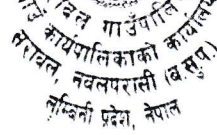 गाउँपालि
गाउँ कार्यपालिकाको कार्यालय
सरावल, नवलपरासी (ब.सु.प.)
लुम्बिनी प्रदेश, नेपाल